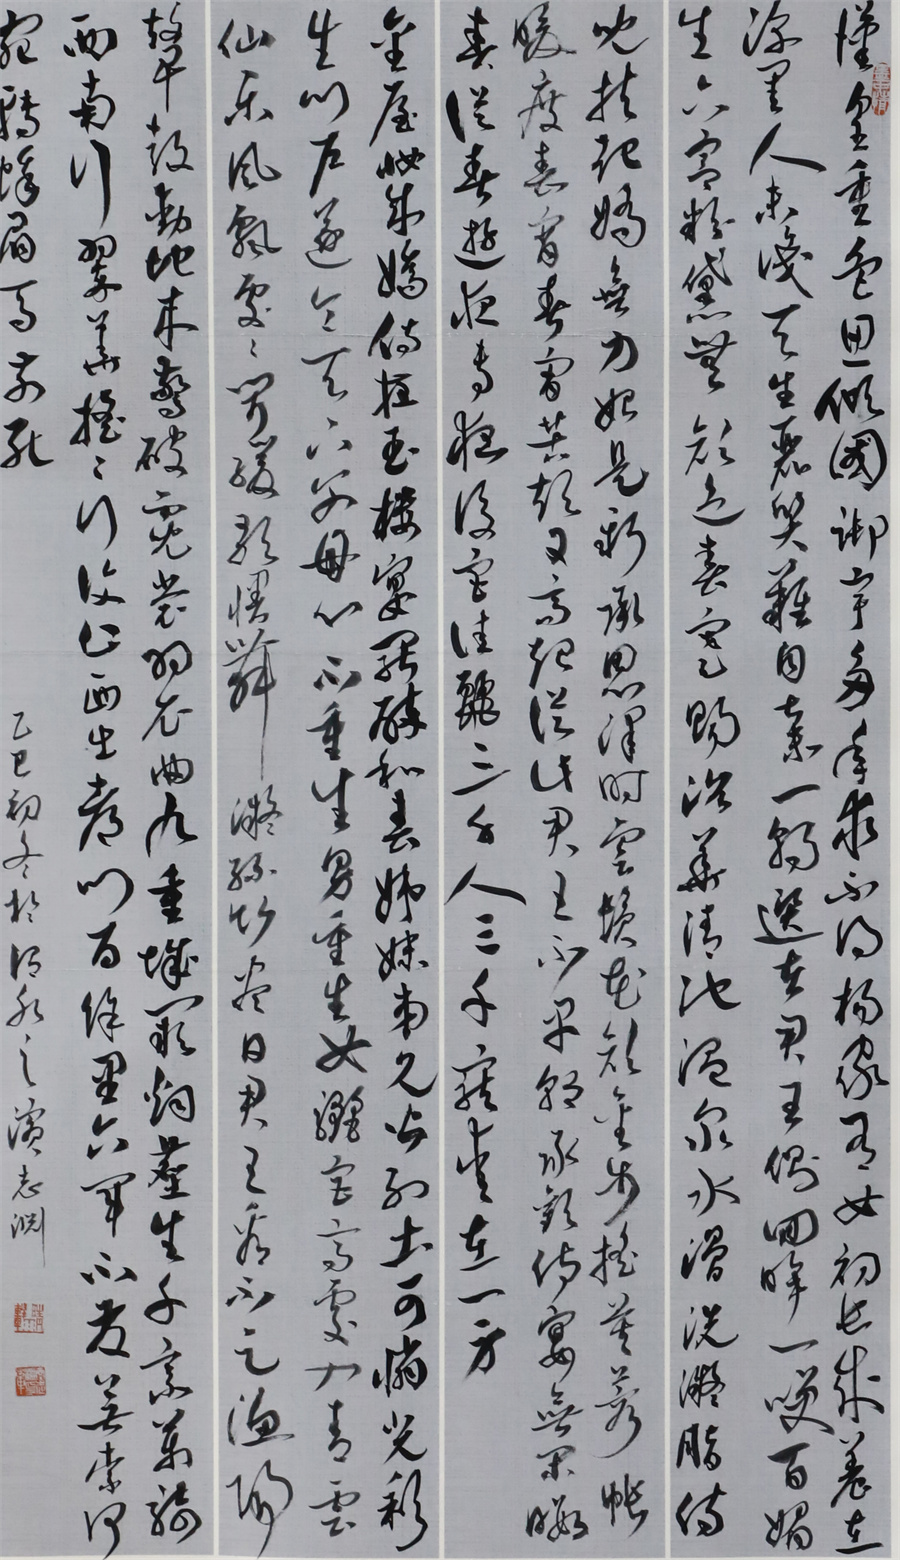 漢皇重色思傾國御宇多年求不得楊家有女初長成養在
深閨人未識天生麗質難自棄一朝選在君王側回眸一笑百媚
生六宮粉黛無顏色春寒賜浴華清池溫泉水滑洗凝脂侍
兒扶起嬌無力始是新承恩澤時雲鬢花顏金步搖芙蓉帳
暖度春宵春宵苦短日高起從此君王不早朝承歡侍宴無閑暇
春從春遊夜專夜後宮佳麗三千人三千寵愛在一身
金屋妝成嬌侍夜玉樓宴罷醉和春姊妹弟兄皆列土可憐光彩
生門戶遂令天下父母心不重生男重生女驪宮高處入青雲
仙樂風飄處〻聞緩歌慢舞凝絲竹盡日君王看不足漁陽
鼙鼓動地來驚破霓裳羽衣曲九重城闕煙塵生千乘萬騎
西南行翠華搖〻行復止西出都門百餘里六軍不發無奈何
宛轉蛾眉馬前死
乙巳初冬於水之濱志淵